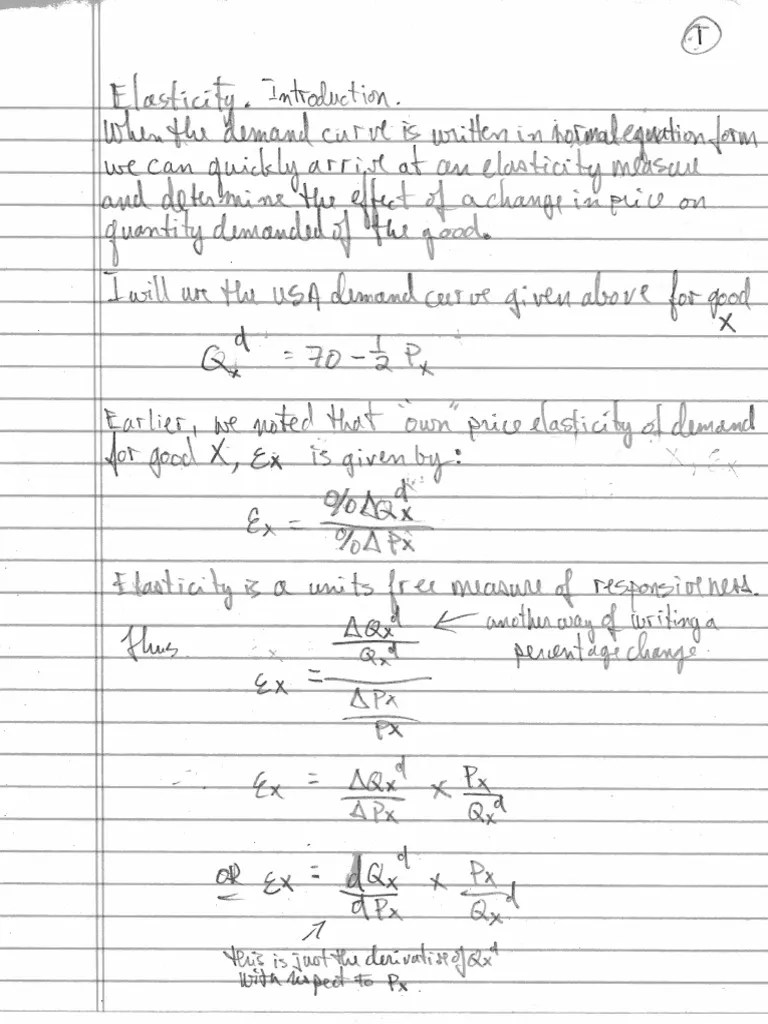 1
Elasticity. Introduction.
When the demand curve is written in normal equation form
we can quickly arrive at an elasticity measure
and determine the effect of a change in price on
quantity demanded of the good.
I will use the USA demand curve given above for good
X
Qx^d = 70 - 1/2 Px
Earlier, we noted that "own" price elasticity of demand
for good X, Ɛx is given by:
Ɛx = %ΔQx^d / %ΔPx
Elasticity is a units free measure of responsiveness.
Thus
Ɛx = (ΔQx^d / Qx^d) / (ΔPx / Px) ← another way of writing a
percentage change.
∴ Ɛx = ΔQx^d / ΔPx × Px / Qx^d
OR Ɛx = dQx^d / dPx × Px / Qx^d
↗
this is just the derivative of Qx^d
with respect to Px.